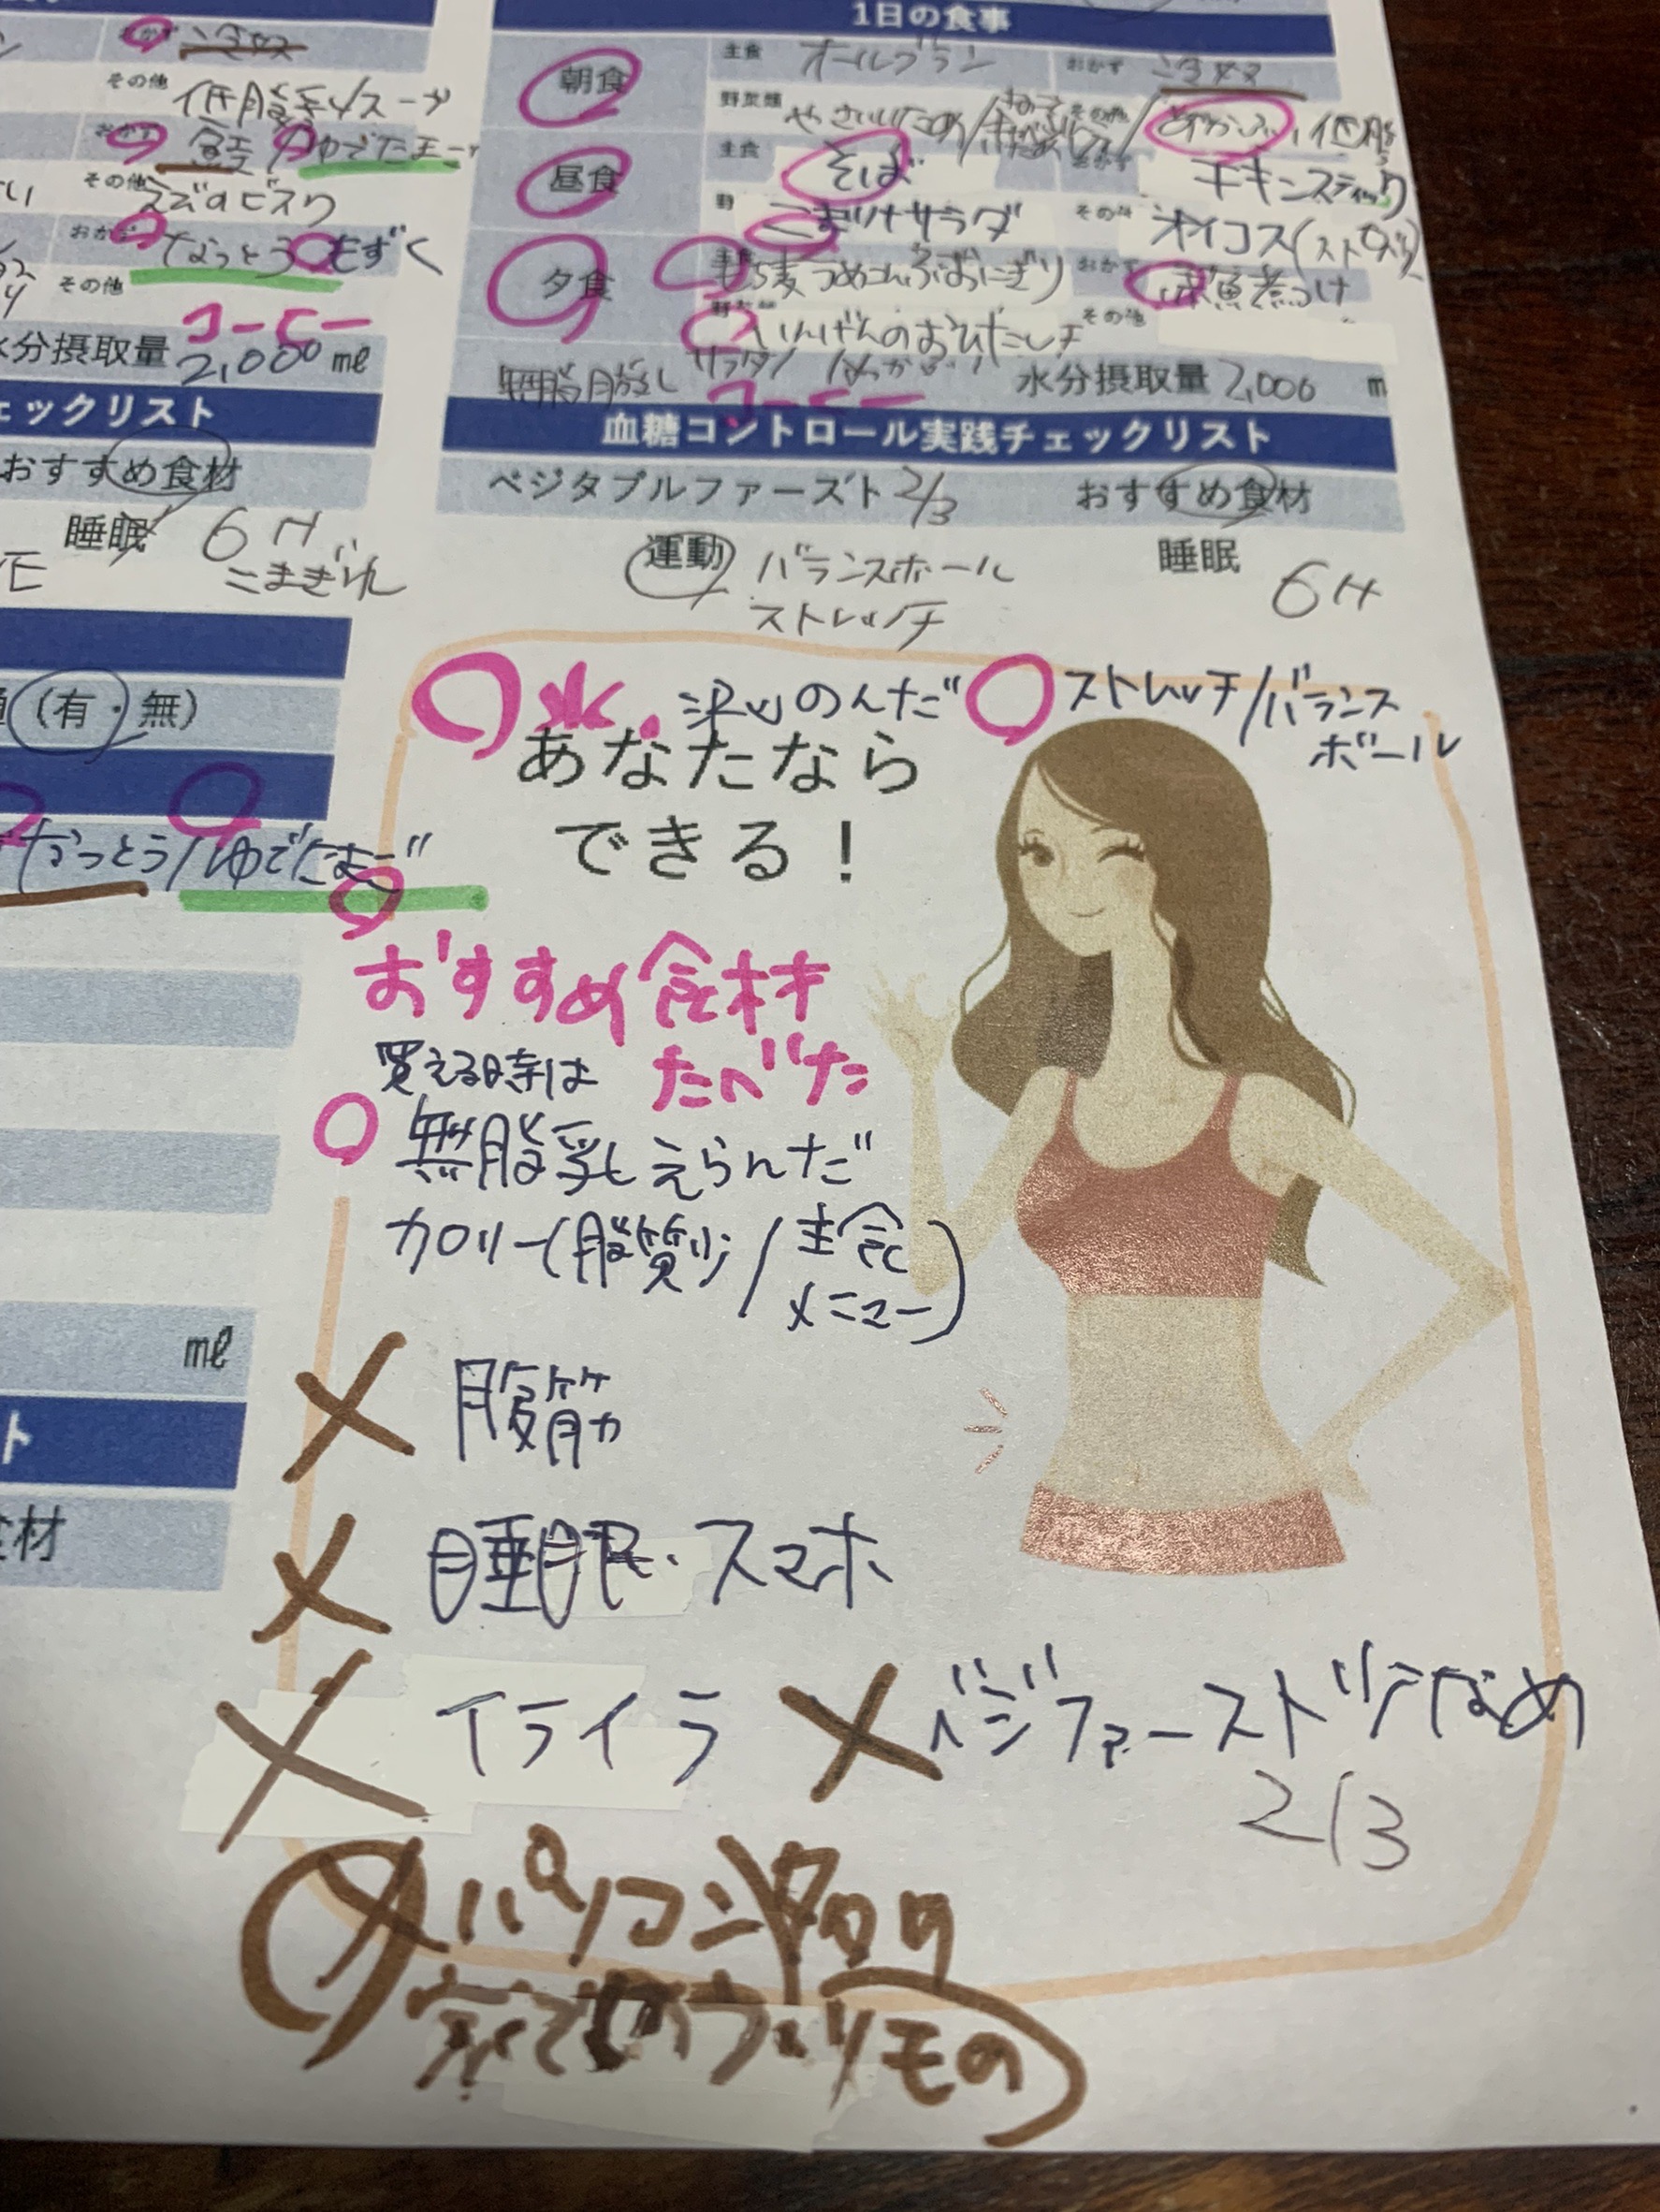 おかず
その他 低脂乳/スープ
おかず
その他 えびのビスク
おかず なっとう もずく
その他
コーヒー
水分摂取量 2,000 ml
ェックリスト
おすすめ食材
睡眠 6H
こまぎれ
(有・無)
なっとう/ゆでたまご
ml
ト
食材
1日の食事
朝食
主食 オールブラン おかず 冷奴
野菜類 やさいいため その他
昼食
主食 そば おかず チキンスティック
野 ごまツナサラダ その他 オイコス(ストロベリ)
夕食
主食 もち麦つめこんぶおにぎり おかず 赤魚煮つけ
いんげんのおひたし その他
サラダ めかぶ 水分摂取量 2,000 m
コーヒー
血糖コントロール実践チェックリスト
ベジタブルファースト 2/3 おすすめ食材
運動 バランスボール 睡眠 6H
ストレッチ
水 沢山のんだ ストレッチ/バランス
ボール
あなたなら
できる!
おすすめ食材
たべた
買える時は
無脂乳えらんだ
カロリー(脂質少/主食
メニュー)
腹筋
睡眠・スマホ
イライラ
ベジファースト少なめ
2/3
パソコン
家で
もの